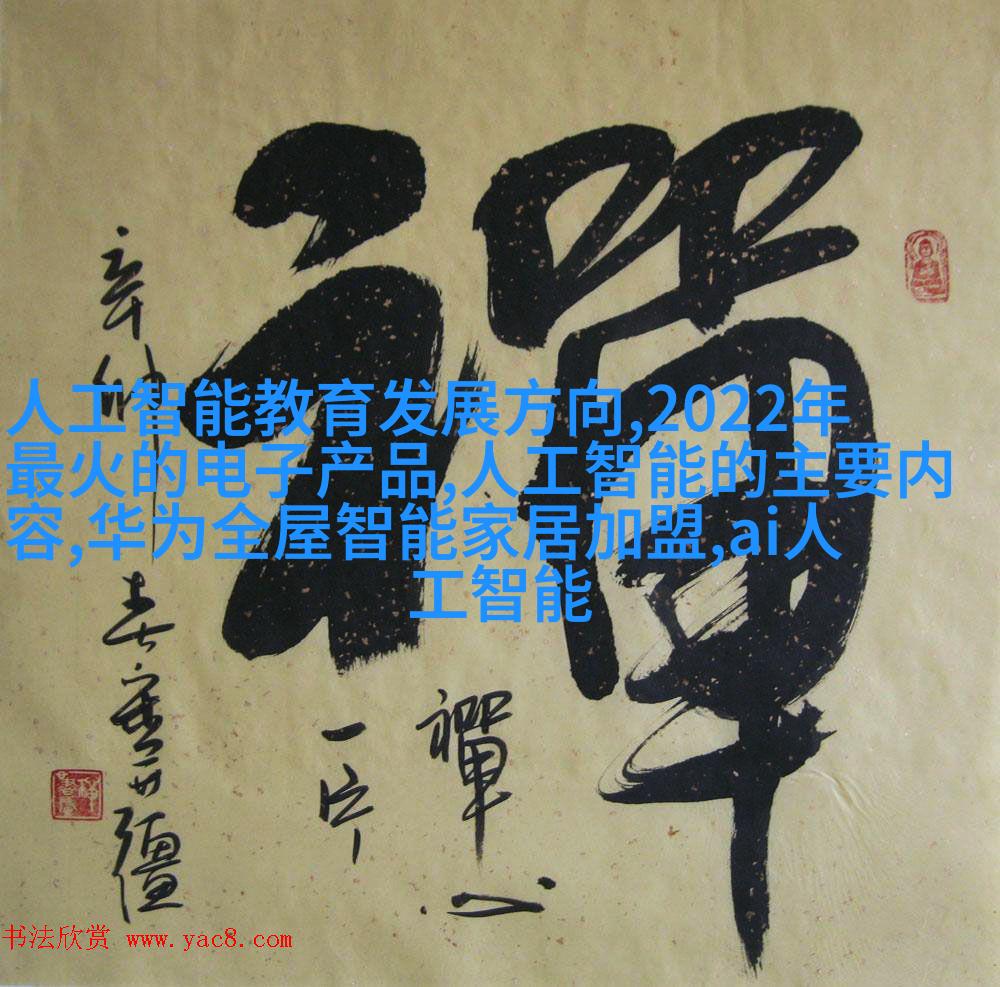 禪
禪心
一片
辛卯年春
人工智能教育发展方向,2022年
最火的电子产品,人工智能的主要内
容,华为全屋智能家居加盟,ai人
工智能
书法欣赏 www.yac8.com